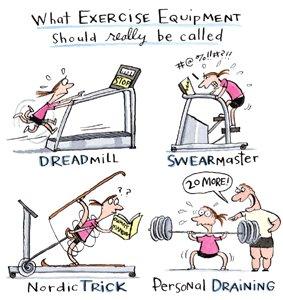 What EXERCISE EQUIPMENT
Should really be called
STOP
#@%!!*?!!
DREADmill
SWEARmaster
? ?
20 MORE!
NordicTRICK
Personal DRAINING